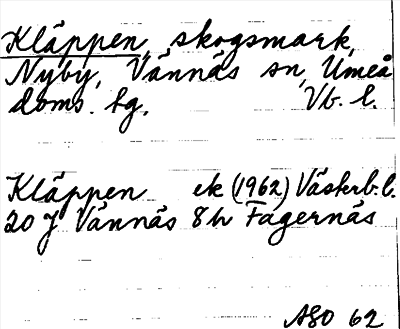 Kläppen, skogsmark,
Nyby, Vännäs sn, Umeå
doms. tg. Vb. l.
Kläppen ek (1962) Västerb. l.
20 J Vännäs 8h Fagernäs
ASO 62